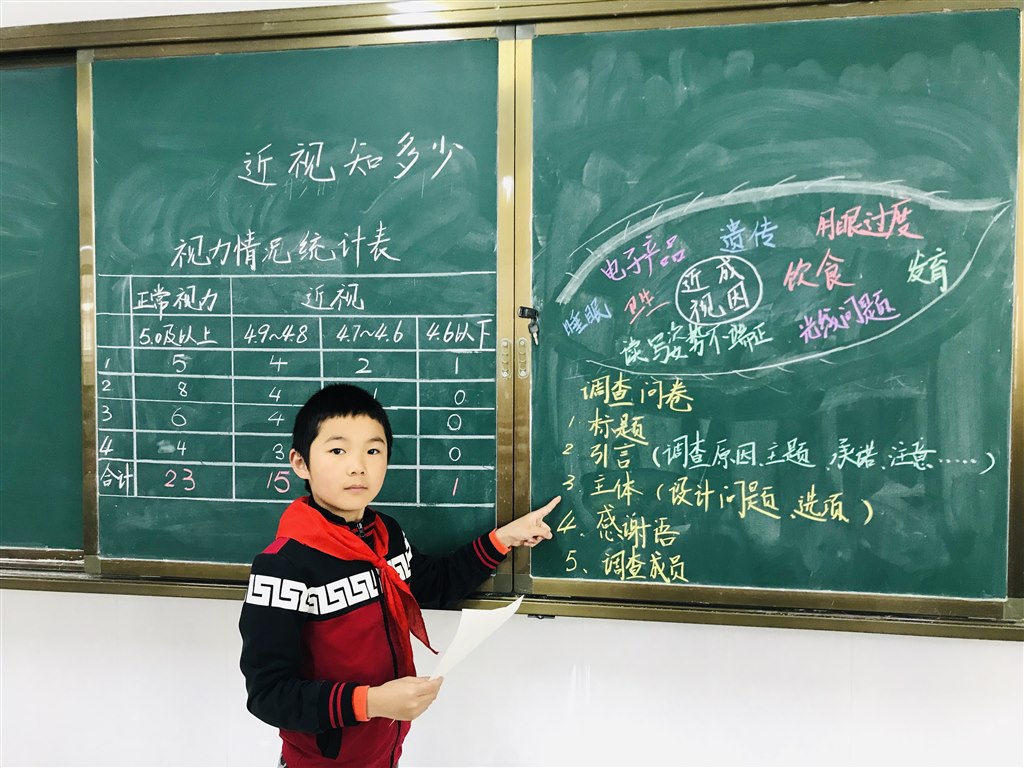 近视知多少
视力情况统计表
正常视力 近视
5.0及以上 4.9~4.8 4.7~4.6 4.6以下
1 5 4 2 1
2 8 4 1 0
3 6 4 0
4 4 3 0
合计 23 15 1
电子产品 遗传 用眼过度
睡眠 卫生 近视成因 饮食 发育
读写姿势不端正 光线问题
调查问卷
1. 标题
2 引言（调查原因、主题、承诺、注意……）
3. 主体（设计问题、选项）
4. 感谢语
5、调查成员